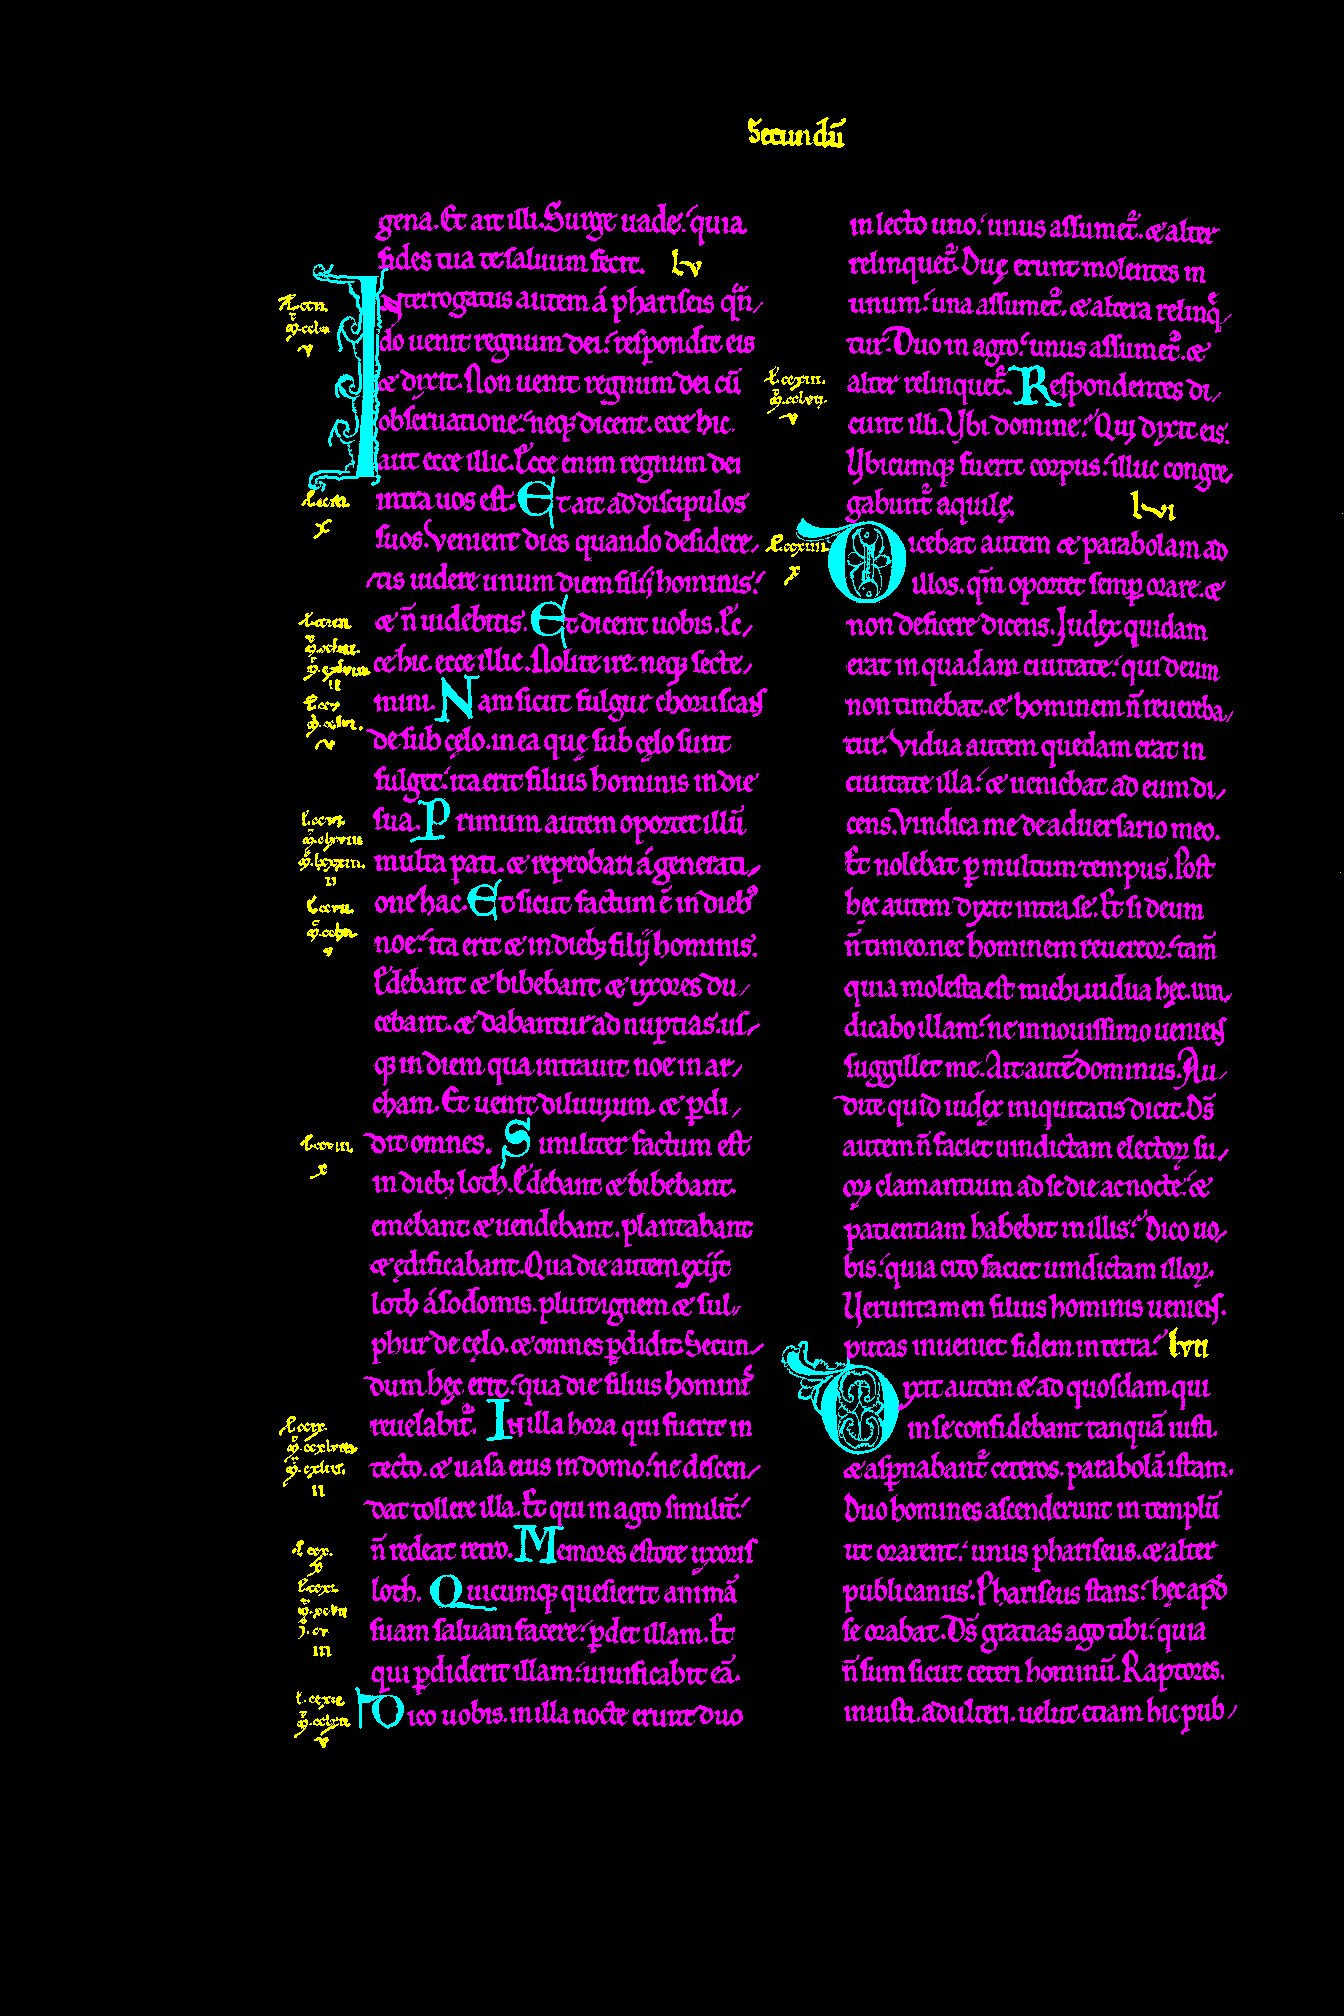 Secundū
gena. Et ait illi. Surge uade. quia
fides tua te saluum fecit. lv
Interrogatus autem á phariseis qn̄
do uenit regnum dei. respondit eis
& dixit. Non uenit regnum dei cū
obseruatione. neq; dicent. ecce hic.
aut ecce illic. Ecce enim regnum dei
intra uos est. Et ait ad discipulos
suos. Venient dies quando desidere
tis uidere unum diem filij hominis.
& n̄ uidebitis. Et dicent uobis. Ec
ce hic. ecce illic. Nolite ire. neq; secte
mini. Nam sicut fulgur choruscans
de sub cęlo. in ea quę sub cęlo sunt
fulget. ita erit filius hominis in die
sua. Primum autem oportet illū
multa pati. & reprobari á generati
one hac. Et sicut factum ē in dieb;
noe. ita erit & in dieb; filij hominis.
Edebant & bibebant & uxores du
cebant. & dabantur ad nuptias. us
q; in diem qua intrauit noe in ar
cham. Et uenit diluuium. & p̱di
dit omnes. Similiter factum est
in dieb; loth. Edebant & bibebant.
emebant & uendebant. plantabant
& ędificabant. Qua die autem exijt
loth á sodomis. pluit ignem & sul
phur de cęlo. & omnes p̱didit. Secun
dum hęc erit. qua die filius hominis
reuelabit̉. In illa hora qui fuerit in
tecto. & uasa eius in domo. ne descen
dat tollere illa. Et qui in agro similit̄.
n̄ redeat retro. Memores estote uxoris
loth. Quicumq; quesierit animā
suam saluam facere. p̱det illam. Et
qui p̱diderit illam. uiuificabit eā.
Dico uobis. in illa nocte erunt duo
in lecto uno. unus assumet̉. & alter
relinquet̉. Duę erunt molentes in
unum. una assumet̉. & altera relinq̄
tur. Duo in agro. unus assumet̉. &
alter relinquet̉. Respondentes di
cunt illi. Ubi domine. Qui dixit eis.
Ubicumq; fuerit corpus. illuc congre
gabunt̉ aquilę. lvi
Dicebat autem & parabolam ad
illos. qm̄ oportet semp̱ orare. &
non deficere dicens. Iudex quidam
erat in quadam ciuitate. qui deum
non timebat. & hominem n̄ reuereba
tur. Vidua autem quedam erat in
ciuitate illa. & ueniebat ad eum di
cens. Vindica me de aduersario meo.
Et nolebat p̱ multum tempus. Post
hęc autem dixit intra se. Et si deum
n̄ timeo. nec hominem reuereor. tam̄
quia molesta est michi uidua hęc. uin
dicabo illam. ne in nouissimo ueniens
suggillet me. Ait autē dominus. Au
dite quid iudex iniquitatis dicit. Ds̄
autem n̄ faciet uindictam electoꝝ su
oꝝ clamantium ad se die ac nocte. &
patientiam habebit in illis. Dico uo
bis. quia cito faciet uindictam illoꝝ.
Veruntamen filius hominis ueniens.
putas inueniet fidem in terra. lvii
Dixit autem & ad quosdam qui
in se confidebant tanquā iusti.
& asp̱nabant̉ ceteros. parabolā istam.
Duo homines ascenderunt in templū
ut orarent. unus phariseus. & alter
publicanus. Phariseus stans. hęc apd̄
se orabat. Ds̄ gratias ago tibi. quia
n̄ sum sicut ceteri hominū. Raptores.
iniusti. adulteri. uelut etiam hic pub